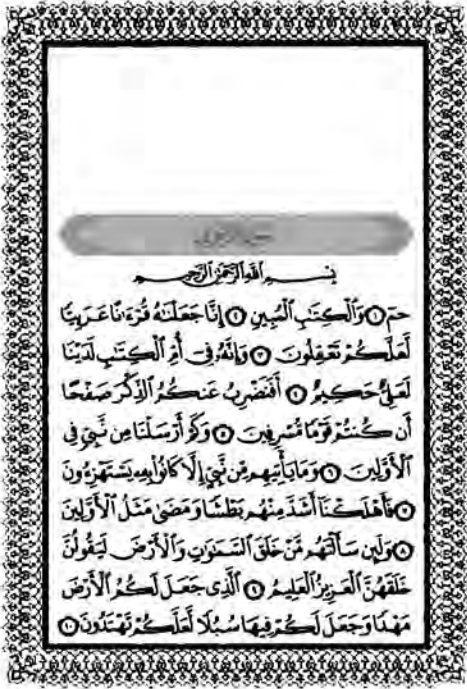 سورة الزخرف
بِسْمِ اللَّهِ الرَّحْمَٰنِ الرَّحِيمِ
حمٓ ۝١ وَٱلْكِتَٰبِ ٱلْمُبِينِ ۝٢ إِنَّا جَعَلْنَٰهُ قُرْءَٰنًا عَرَبِيًّا
لَّعَلَّكُمْ تَعْقِلُونَ ۝٣ وَإِنَّهُۥ فِىٓ أُمِّ ٱلْكِتَٰبِ لَدَيْنَا
لَعَلِىٌّ حَكِيمٌ ۝٤ أَفَنَضْرِبُ عَنكُمُ ٱلذِّكْرَ صَفْحًا
أَن كُنتُمْ قَوْمًا مُّسْرِفِينَ ۝٥ وَكَمْ أَرْسَلْنَا مِن نَّبِىٍّ فِى
ٱلْأَوَّلِينَ ۝٦ وَمَا يَأْتِيهِم مِّن نَّبِىٍّ إِلَّا كَانُوا۟ بِهِۦ يَسْتَهْزِءُونَ
۝٧ فَأَهْلَكْنَآ أَشَدَّ مِنْهُم بَطْشًا وَمَضَىٰ مَثَلُ ٱلْأَوَّلِينَ
۝٨ وَلَئِن سَأَلْتَهُم مَّنْ خَلَقَ ٱلسَّمَٰوَٰتِ وَٱلْأَرْضَ لَيَقُولُنَّ
خَلَقَهُنَّ ٱلْعَزِيزُ ٱلْعَلِيمُ ۝٩ ٱلَّذِى جَعَلَ لَكُمُ ٱلْأَرْضَ
مَهْدًا وَجَعَلَ لَكُمْ فِيهَا سُبُلًا لَّعَلَّكُمْ تَهْتَدُونَ ۝١٠